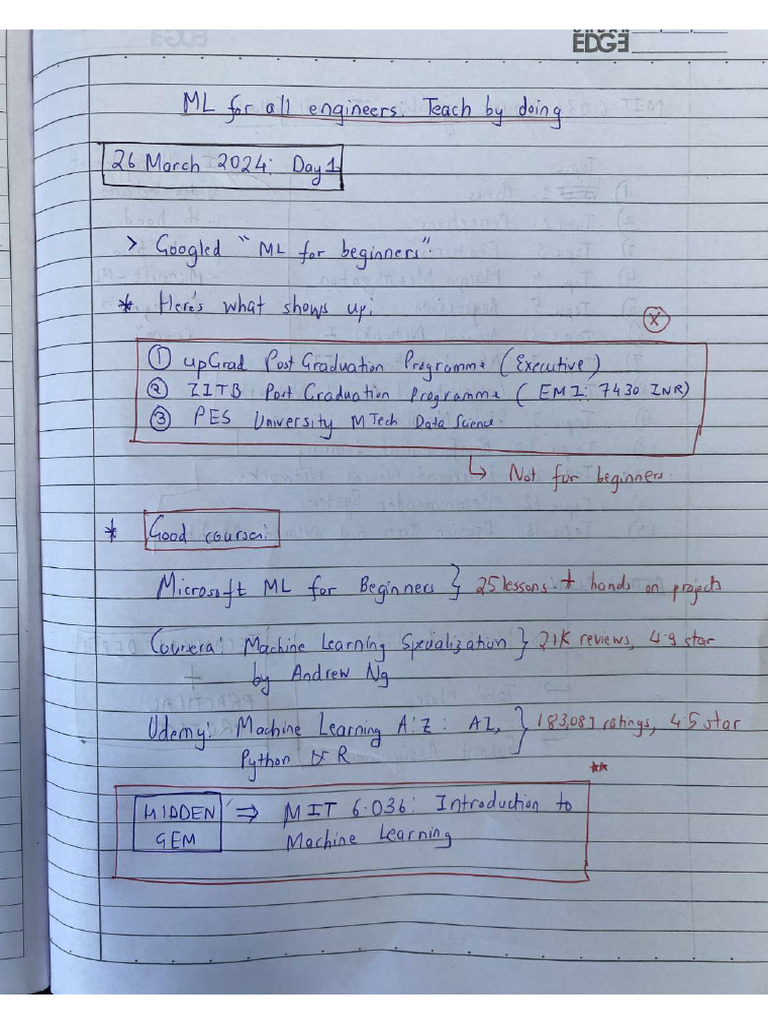 EDGE
ML for all engineers. Teach by doing
26 March 2024: Day 1
> Googled "ML for beginners".
* Here's what shows up:
X
① upGrad Post Graduation Programme (Executive)
② IITB Post Graduation Programme (EMI: 7430 INR)
③ PES University MTech Data Science.
↳ Not for beginners.
* Good courses:
Microsoft ML for Beginners } 25 lessons + hands on projects
Coursera: Machine Learning Specialization } 21K reviews, 4.9 star
by Andrew Ng
Udemy: Machine Learning A:Z: AI, } 183,087 ratings, 4.5 star
Python & R
**
HIDDEN ⇒ MIT 6.036: Introduction to
GEM Machine Learning